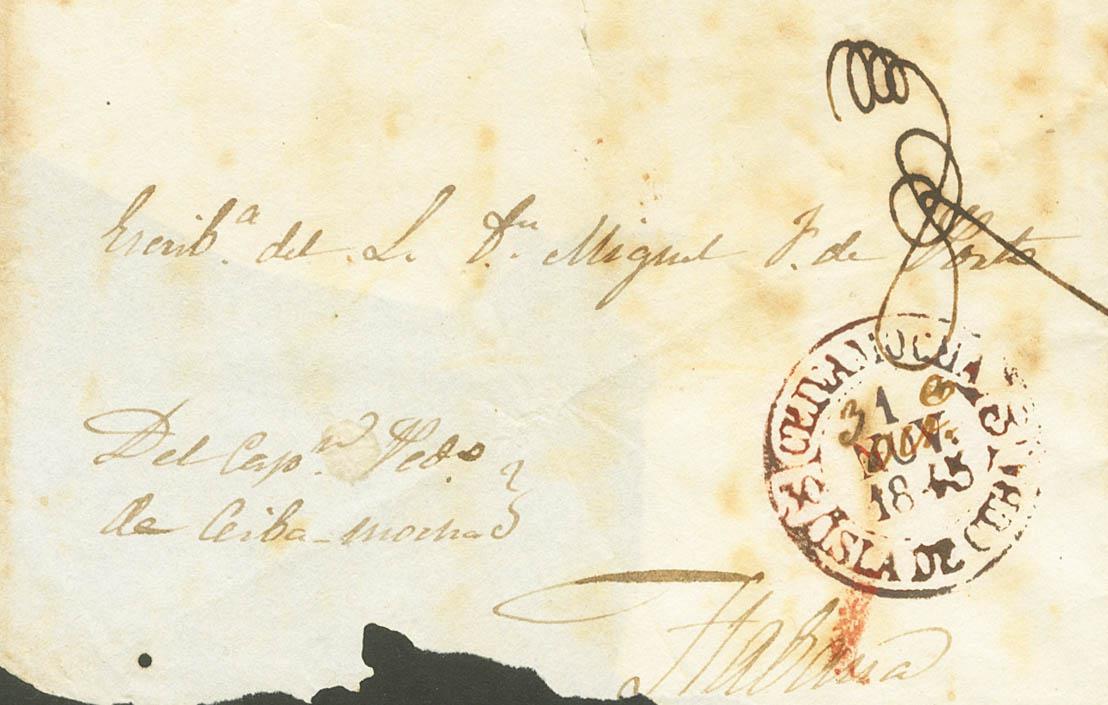 Escrib.ª del L. Dn Miguel F. de Porto
CEIBA MOCHA
ISLA DE CUBA
31
NOV.
1845
Del Cap.n Ped.o
de Ceiba-mocha
Habana